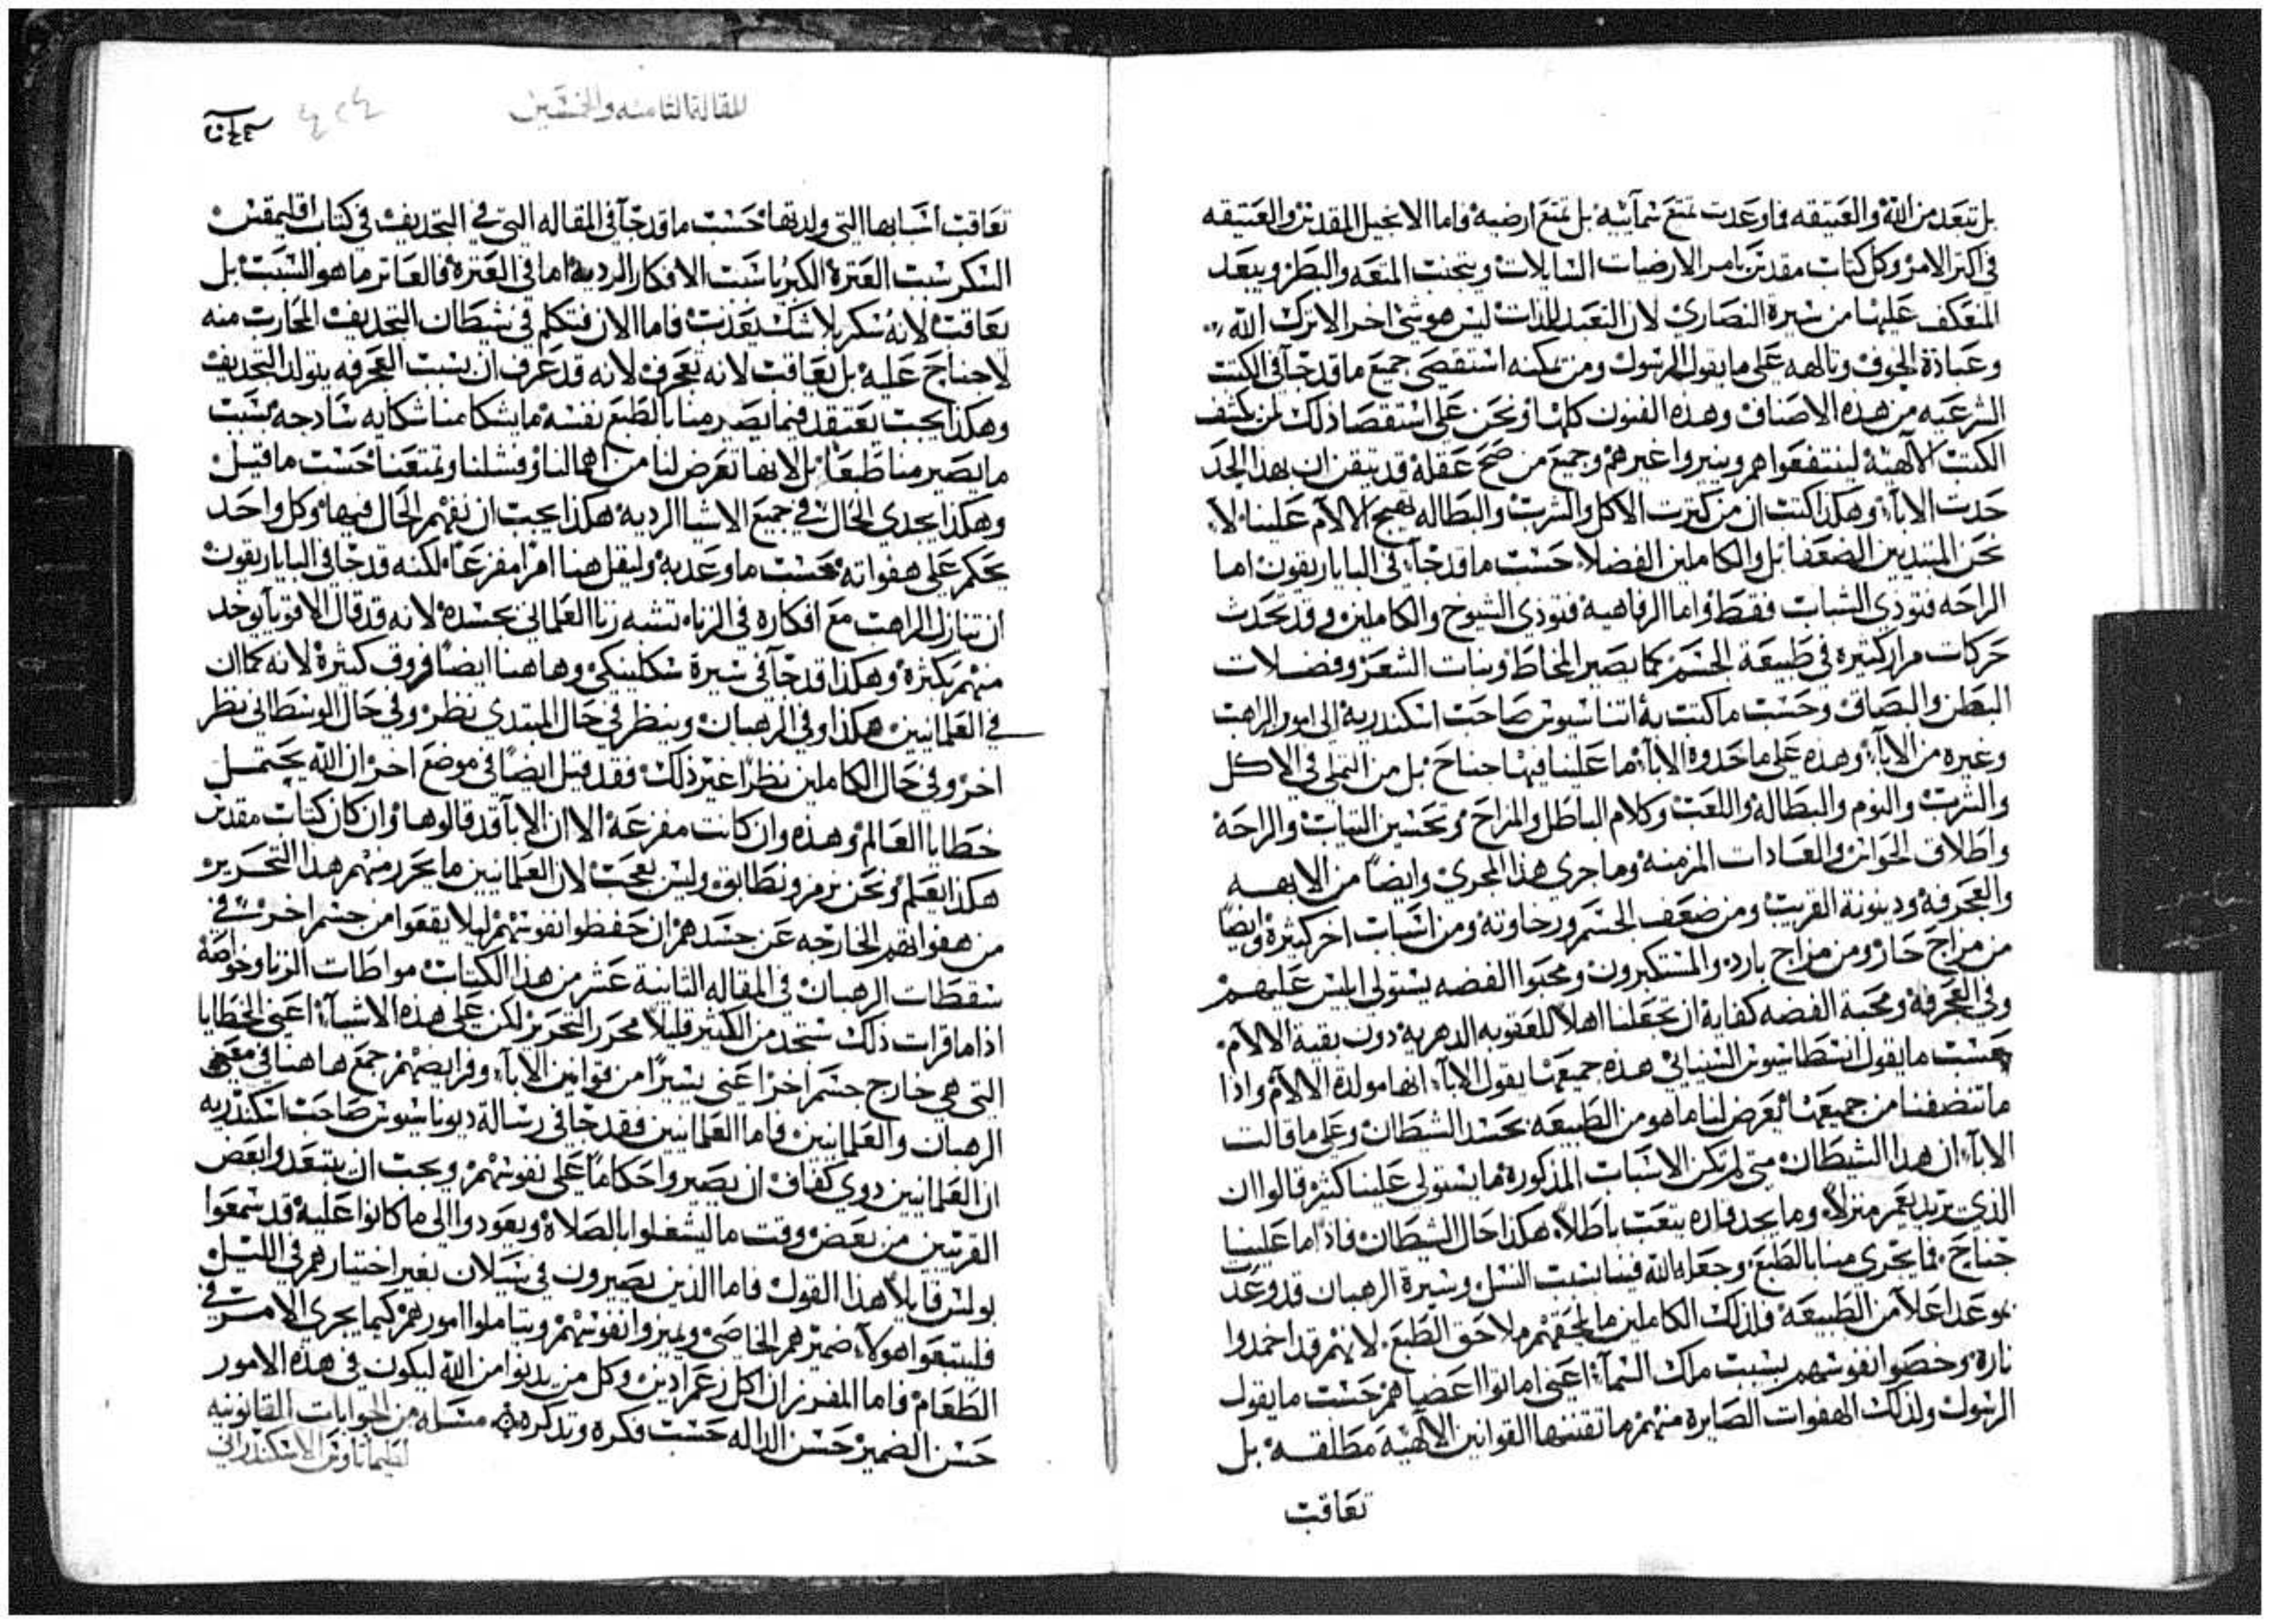 بل تبعد من الله والعتيقه فاوعدت تمتع سمآئيه بل تمتع ارضيه فاما الانجيل المقدس والعتيقه
في اكتر الامر وكل كتاب مقدس يامر الارضيات السايلات وبتجنب المتعه والبطر ويبعد
المنعكف عليها من سيرة النصارى لان التعبد للذات ليس هو شي اخر الا ترك الله
وعبادة الجوف وتالهه على ما يقول الرسول ومن يمكنه استقصى جميع ما قد جآ في الكتب
الشرعيه من هذه الاصناف وهذه الفنون كلها ونحن على استقصا ذلك لمن كشف
الكتب الالهيه لينتفعوا هم وينيروا غيرهم وجميع من صح عقله قد تيقن ان بهذا الحد
حدت الابآ وهكذا كتب ان من كترت الاكل والشرب والبطاله تهيج الالام علينا لا
نحن المبتديين الضعفا بل والكاملين الفضلا حسب ما قد جآ في الباباريقون اما
الراحه فتودي الشباب فقط واما الرفاهيه فتودي الشيوخ والكاملين وقد تحدث
حركات مرار كتيره في طبيعة الجسم كما يصير المخاط ونبات الشعر وفضلات
البطن والبصاق وحسب ما كتب به اتناسيوس صاحب اسكندريه الى امون الراهب
وغيره من الابآ وهذه على ما حدوة الابآ ما علينا فيها جناح بل من التملي في الاكل
والشرب والنوم والبطاله واللعب وكلام الباطل والمزاح وتحسين التياب والراحه
واطلاق الحواس والعادات المزمنه وما جرى هذا المجرى وايضاً من الابهه
والعجرفه ودينونة القريب ومن ضعف الجسم ورخاوته ومن اسباب اخر كتيرة وايضاً
من مزاج حار ومن مزاج بارد والمستكبرون ومحبوا الفضه يستولى ابليس عليهم
وفي العجرفه ومحبة الفضه كفاية ان تجعلنا اهلاً للعقوبه الدهريه دون بقية الالام
حسب ما يقول انسطاسيوس السينائي هذه جميعها يقول الابآ انها مولدة الالام واذا
ما تنضفنا من جميعها يعرض لنا ما هو من الطبيعه بحسد الشيطان وعلى ما قالت
الابآ ان هذا الشيطان متى لم تكن الاسباب المذكورة ما يستولى علينا كتير قالوا ان
الذي يريد يعمر منزلاً وما يجد فاره يتعب باطلاً هكذا حال الشيطان فاذاً ما علينا
جناح فما يجري منا بالطبع وجعله الله فينا بسبب النسل وسيرة الرهبان قد وعد
بموعد اعلا من الطبيعه فلذلك الكاملين ما يلحقهم ملاحق الطبع لانهم قد اخمدوا
ناره وخصوا نفوسهم بسبب ملك السمآ اعني اماتوا اعضاهم حسب ما يقول
الرسول ولذلك الهفوات الصايرة منهم ما تقننها القوانين الالهيه مطلقه بل
تعاقب
المقالة التامنه والخمسين
٤٢٤
تعاقب اسبابها التي ولدتها حسب ما قد جآ في المقاله التي في التجديف في كتاب اقليمقس
السكر سبب العترة الكبريا سبب الافكار الرديه اما في العترة فالعاتر ما هو السبب بل
يعاقب لانه سكر بلا شك يعذب فاما الان فتكلم في شيطان التجديف المحارب منه
لا جناح عليه بل يعاقب لانه تعجرف لانه قد عرف ان بسبب العجرفه يتولد التجديف
وهكذا يجب يعتقد فيما يصير منا بالطبع نفسه ما يشكا منا شكايه سادجه بسبب
ما يصير منا طبعاً بل لانها تعرض لنا من اهمالنا وفشلنا وتمتعنا حسب ما قيل
وهكذا يجدى الحال في جميع الاشيا الرديه هكذا يجب ان نفهم الحال فيها وكل واحد
يحكم على هفواته بحسب ما وعد به وليقل هنا امراً مفزعاً لكنه قد جا في الباباريقون
ان تنازل الراهب مع افكاره في الزنا تشبه زنا العلماني بجسده لانه قد قال الاقويا يوخد
منهم بكثرة وهكذا قد جآ في سيرة سنكليتكي وهاهنا ايضاً فروق كثيرة لانه كما ان
في العلمانيين هكذا وفي الرهبان وينظر في حال المبتدي نظر وفي حال الوسطاني نظر
اخر وفي حال الكاملين نظراً غير ذلك فقد قيل ايضاً في موضع اخر ان الله يحتمل
خطايا العالم وهذه وان كانت مفزعه الا ان الابآ قد قالوها وان كان كتاب مقدس
هكذا يعلم ونحن نرمز ونطابق وليس بعجب لان العلمانيين ما يحرر منهم هذا التحرير
من هفواتهم الخارجه عن جسدهم ان حفظوا نفوسهم ليلا يقعوا من جسم اخر في
سقطات الرهبان في المقاله التانية عشر من هذا الكتاب مواطات الزنا وخواصه
اذا ما قرات ذلك ستجد من الكتير قليلاً محرر التحرير لكن على هذه الاشيآ اعني الخطايا
التي هي خارج جسم اخر اعني يسيراً من قوانين الابآ وفرايضهم جمع هاهنا في معنى
الرهبان والعلمانيين فاما العلمانيين فقد جا في رسالة ديوناسيوس صاحب اسكندريه
ان العلمانيين دوي كفاف ان يصيروا حكاماً على نفوسهم ويجب ان يبتعدوا بعض
القرنين من بعض وقت ما ليشغلوا بالصلاة ويعودوا الى ما كانوا عليه قد سمعوا
بولس قايلاً هذا القول فاما الذين يصيرون في سيلان بغير اختيارهم في الليل
فليتبعوا هولاء ضميرهم الخاصي ويميزوا نفوسهم ويتاملوا امورهم كيما يجرى الامر في
الطعام فاما المفرز ان اكل زعم ادين وكل من يدنوا من الله ليكون في هذه الامور
حسن الضمير حسن الداله حسب فكره وتدكره مسله من الجوابات القانونيه
لطيماتاوس الاسكندراني